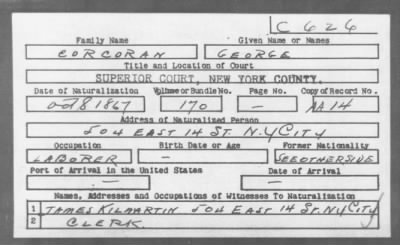 C 626
Family Name Given Name or Names
CORCORAN GEORGE
Title and Location of Court
SUPERIOR COURT, NEW YORK COUNTY.
Date of Naturalization Volume or Bundle No. Page No. Copy of Record No.
Oct 8 1867 170 — AA 14
Address of Naturalized Person
504 EAST 14 ST. N.Y CITY
Occupation Birth Date or Age Former Nationality
LABORER — SEE OTHER SIDE
Port of Arrival in the United States Date of Arrival
— —
Names, Addresses and Occupations of Witnesses To Naturalization
1 JAMES KILMARTIN 504 EAST 14 ST. NY CITY
2 CLERK.